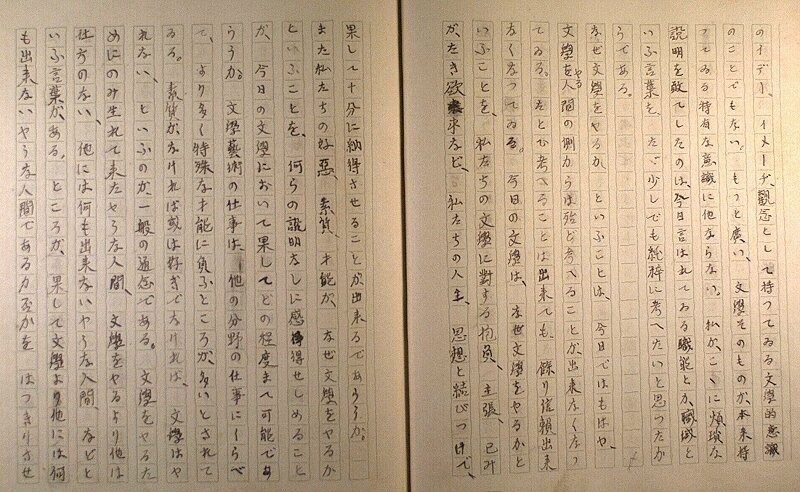 のイデー、イメーヂ、観念として持つてゐる文學的意識
のことでもない。もつと廣い、文學そのものが、本来持
つてゐる特有な意識に他ならない。私が、こゝに煩瑣な
説明を敢てしたのは、今日言はれてゐる職能とか、職域と
いふ言葉を、たゞ少しでも純粋に考へたいと思つたか
らである。
なぜ文學をやるか、といふことは、今日ではもはや、
文學をやる人間の側からは殆ど考へることが出来なくなつ
てゐる。たとひ考へることは出来ても、餘り信頼出来
なくなつてゐる。今日の文學は、なぜ文學をやるかと
いふことを、私たちの文學に對する抱負、主張、已み
がたき欲求など、私たちの人生、思想と結びつけて、
果して十分に納得させることが出来るであらうか。
また私たちの好惡、素質、才能が、なぜ文學をやるか
といふことを、何らの説明なしに感得せしめること
が、今日の文學において果してどの程度まで可能であ
らうか。文學藝術の仕事は、他の分野の仕事にくらべ
て、より多く特殊な才能に負ふところが多いとされて
ゐる。素質がなければ或は好きでなければ、文學はや
れない、といふのが一般の通念である。文學をやるた
めにのみ生れて来たやうな人間、文學をやるより他は
仕方のない、他には何も出来ないやうな人間、などと
いふ言葉がある。ところが、果して文學より他には何
も出来ないやうな人間であるか否かを、はつきりさせ